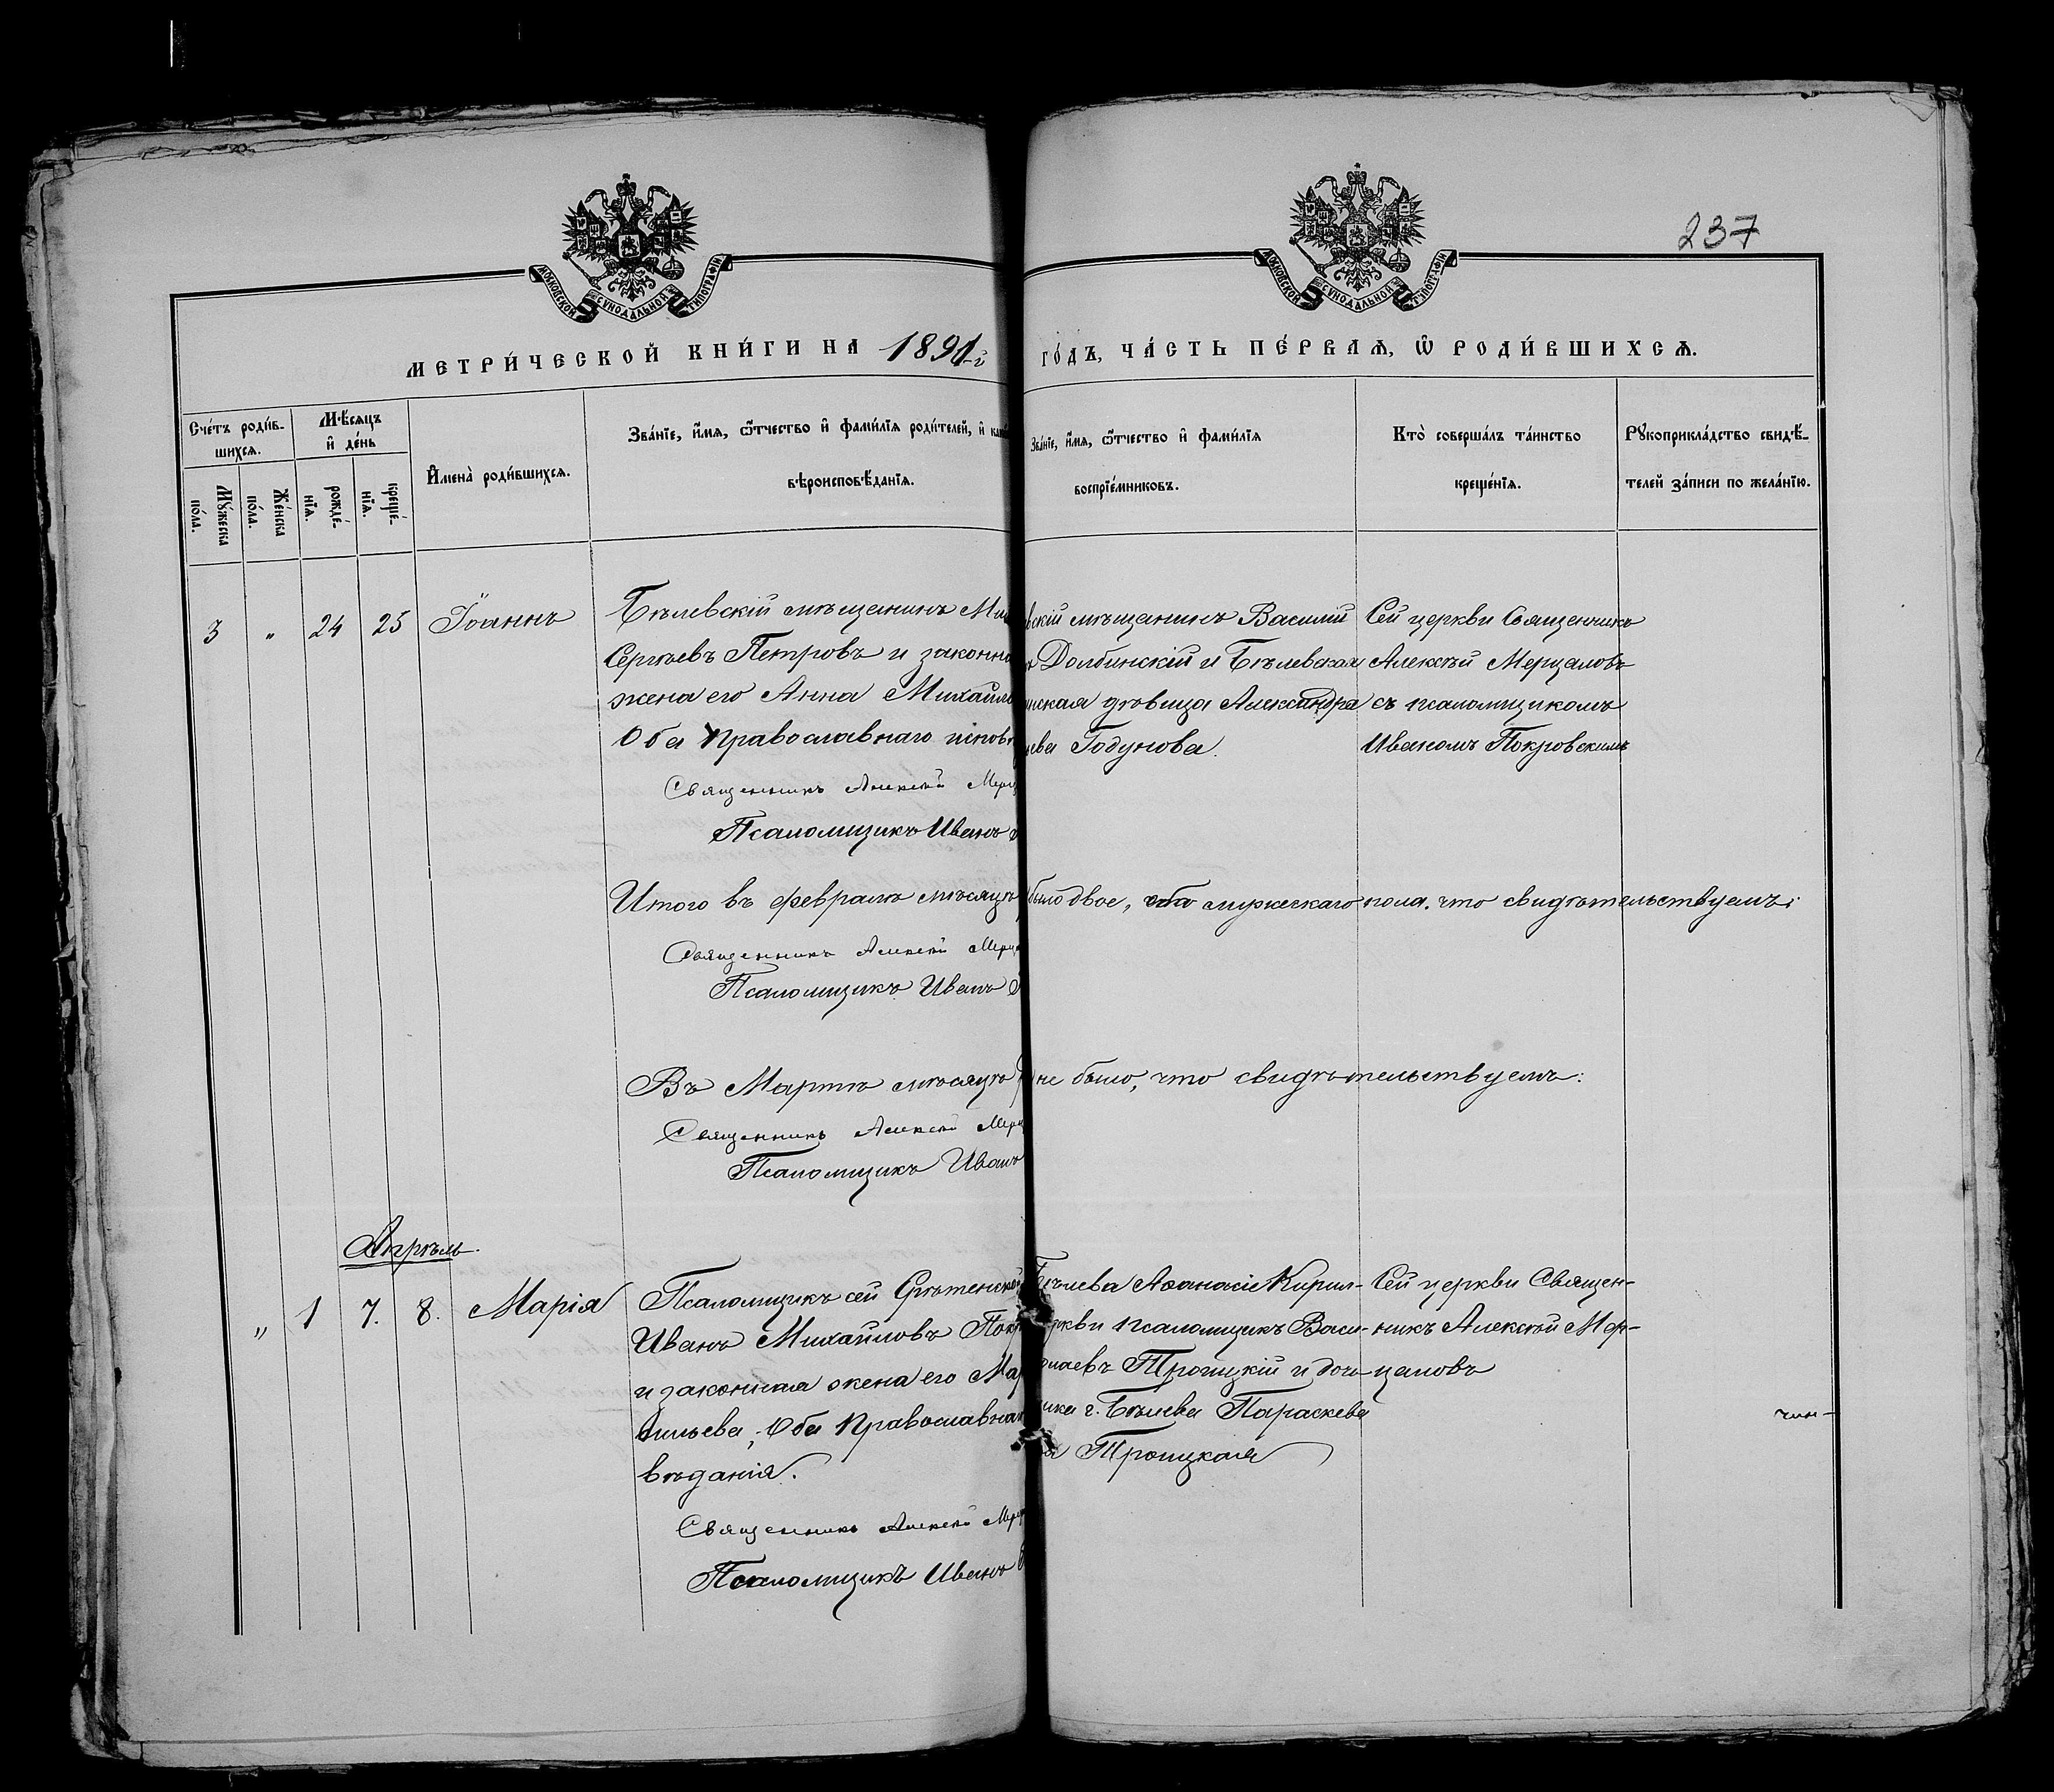 237
МОСКОВСКОЙ СУНОДАЛЬНОЙ ТИПОГРАФІИ
МОСКОВСКОЙ СУНОДАЛЬНОЙ ТИПОГРАФІИ
МЕТРИ́ЧЕСКОЙ КНИ́ГИ НА 1891-й
ГО́ДЪ, ЧА́СТЬ ПЕ́РВАѦ, Ѽ РОДИ́ВШИХСѦ.
Сче́тъ роди́в-
шихсѧ.
Мꙋ́жеска
по́ла.
Же́нска
по́ла.
Мѣ́сѧцъ
и҆ де́нь
рожде́-
нїѧ.
креще́-
нїѧ.
И҆мена̀ роди́вшихсѧ.
Зва́нїе, и҆́мѧ, ѻ҆́тчество и҆ фами́лїѧ роди́телей, и҆
вѣроисповѣ́данїѧ.
Зва́нїе, и҆́мѧ, ѻ҆́тчество и҆ фами́лїѧ
воспрїе́мниковъ.
Кто̀ соверша́лъ та́инство
креще́нїѧ.
Рꙋкоприкла́дство свидѣ́-
телей за́писи по жела́нїю.
3 „ 24 25 Іоаннъ
Бѣлевскій мѣщанинъ Ми
Сергѣевъ Петровъ и законна
жена его Анна Михайлов
Оба православнаго испов
Священникъ Алексѣй Мерц
Псаломщикъ Иванъ
вскій мѣщанинъ Василій
Долбинскій и Бѣлевская
нская дѣвица Александра
ева Годунова.
Сей церкви Священникъ
Алексѣй Мерцаловъ
съ псаломщикомъ
Иваномъ Покровскимъ
Итого въ февралѣ мѣсяцѣ было двое, оба мужескаго пола. что свидѣтельствуемъ:
Священникъ Алексѣй Мерц
Псаломщикъ Иванъ
Въ Мартѣ мѣсяцѣ не было, что свидѣтельствуемъ:
Священникъ Алексѣй Мерц
Псаломщикъ Иванъ
Апрѣль.
„ 1 7. 8. Марія
Псаломщикъ сей Срѣтенской
Иванъ Михайловъ Покр
и законная жена его Мар
сильева, Оба Православна
вѣданія.
Священникъ Алексѣй Мерц
Псаломщикъ Иванъ
Бѣлева Аѳанасіе Кирил-
ркви псаломщикъ Васи-
олаевъ Троицкій и дочь
ика г. Бѣлева Параскева
Троицкая
Сей церкви Священ-
никъ Алексѣй Мер-
цаловъ
чин-